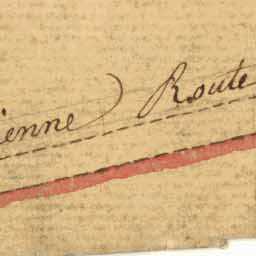 ienne Route